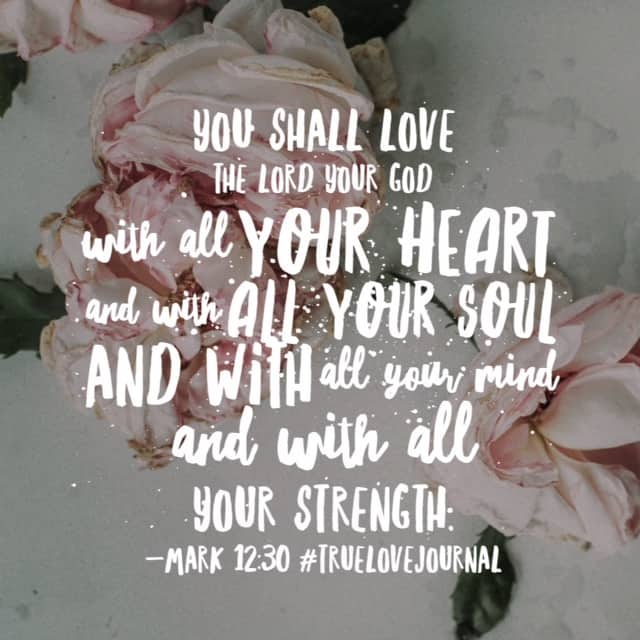 YOU SHALL LOVE
THE LORD YOUR GOD
with all YOUR HEART
and with ALL YOUR SOUL
AND WITH all your mind
and with all
YOUR STRENGTH.
—MARK 12:30 #TRUELOVEJOURNAL